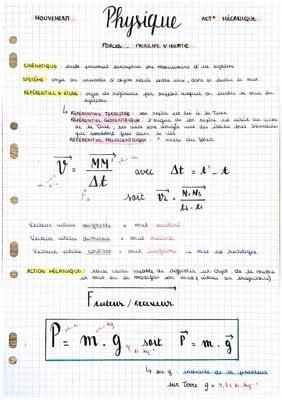 MOUVEMENT Physique ACT° MÉCANIQUE
FORCES - PRINCIPE D'INERTIE
CINÉMATIQUE étude du mouvement du système
SYSTÈME : objet ou ensemble d'objets reliés entre eux, dont on étudie le mvt
RÉFÉRENTIEL D'ÉTUDE : objet de référence par rapport auquel on étudie le mvt du système
↳ RÉFÉRENTIEL TERRESTRE : son repère est lié à la Terre
RÉFÉRENTIEL GÉOCENTRIQUE : l'origine de son repère est située au centre de la Terre, les axes sont dirigés vers des étoiles très lointaines
que considère fixes dans le ciel
RÉFÉRENTIEL HÉLIOCENTRIQUE : " centre du Soleil
V = MM' / Δt avec Δt = t' - t
soit V2 =
Vecteur vitesse augmente = mvt accéléré
Vecteur vitesse diminue = mvt ralenti
Vecteur vitesse constant = mvt uniforme → mvt est rectiligne
ACTION MÉCANIQUE : toute cause capable de déformer un objet, de le mettre
en mvt ou de modifier son mvt (vitesse ou trajectoire)
F auteur / receveur
P = m . g soit P = m . g
↳ ou g = intensité de la pesanteur
sur Terre g = 9,81 N.kg⁻¹